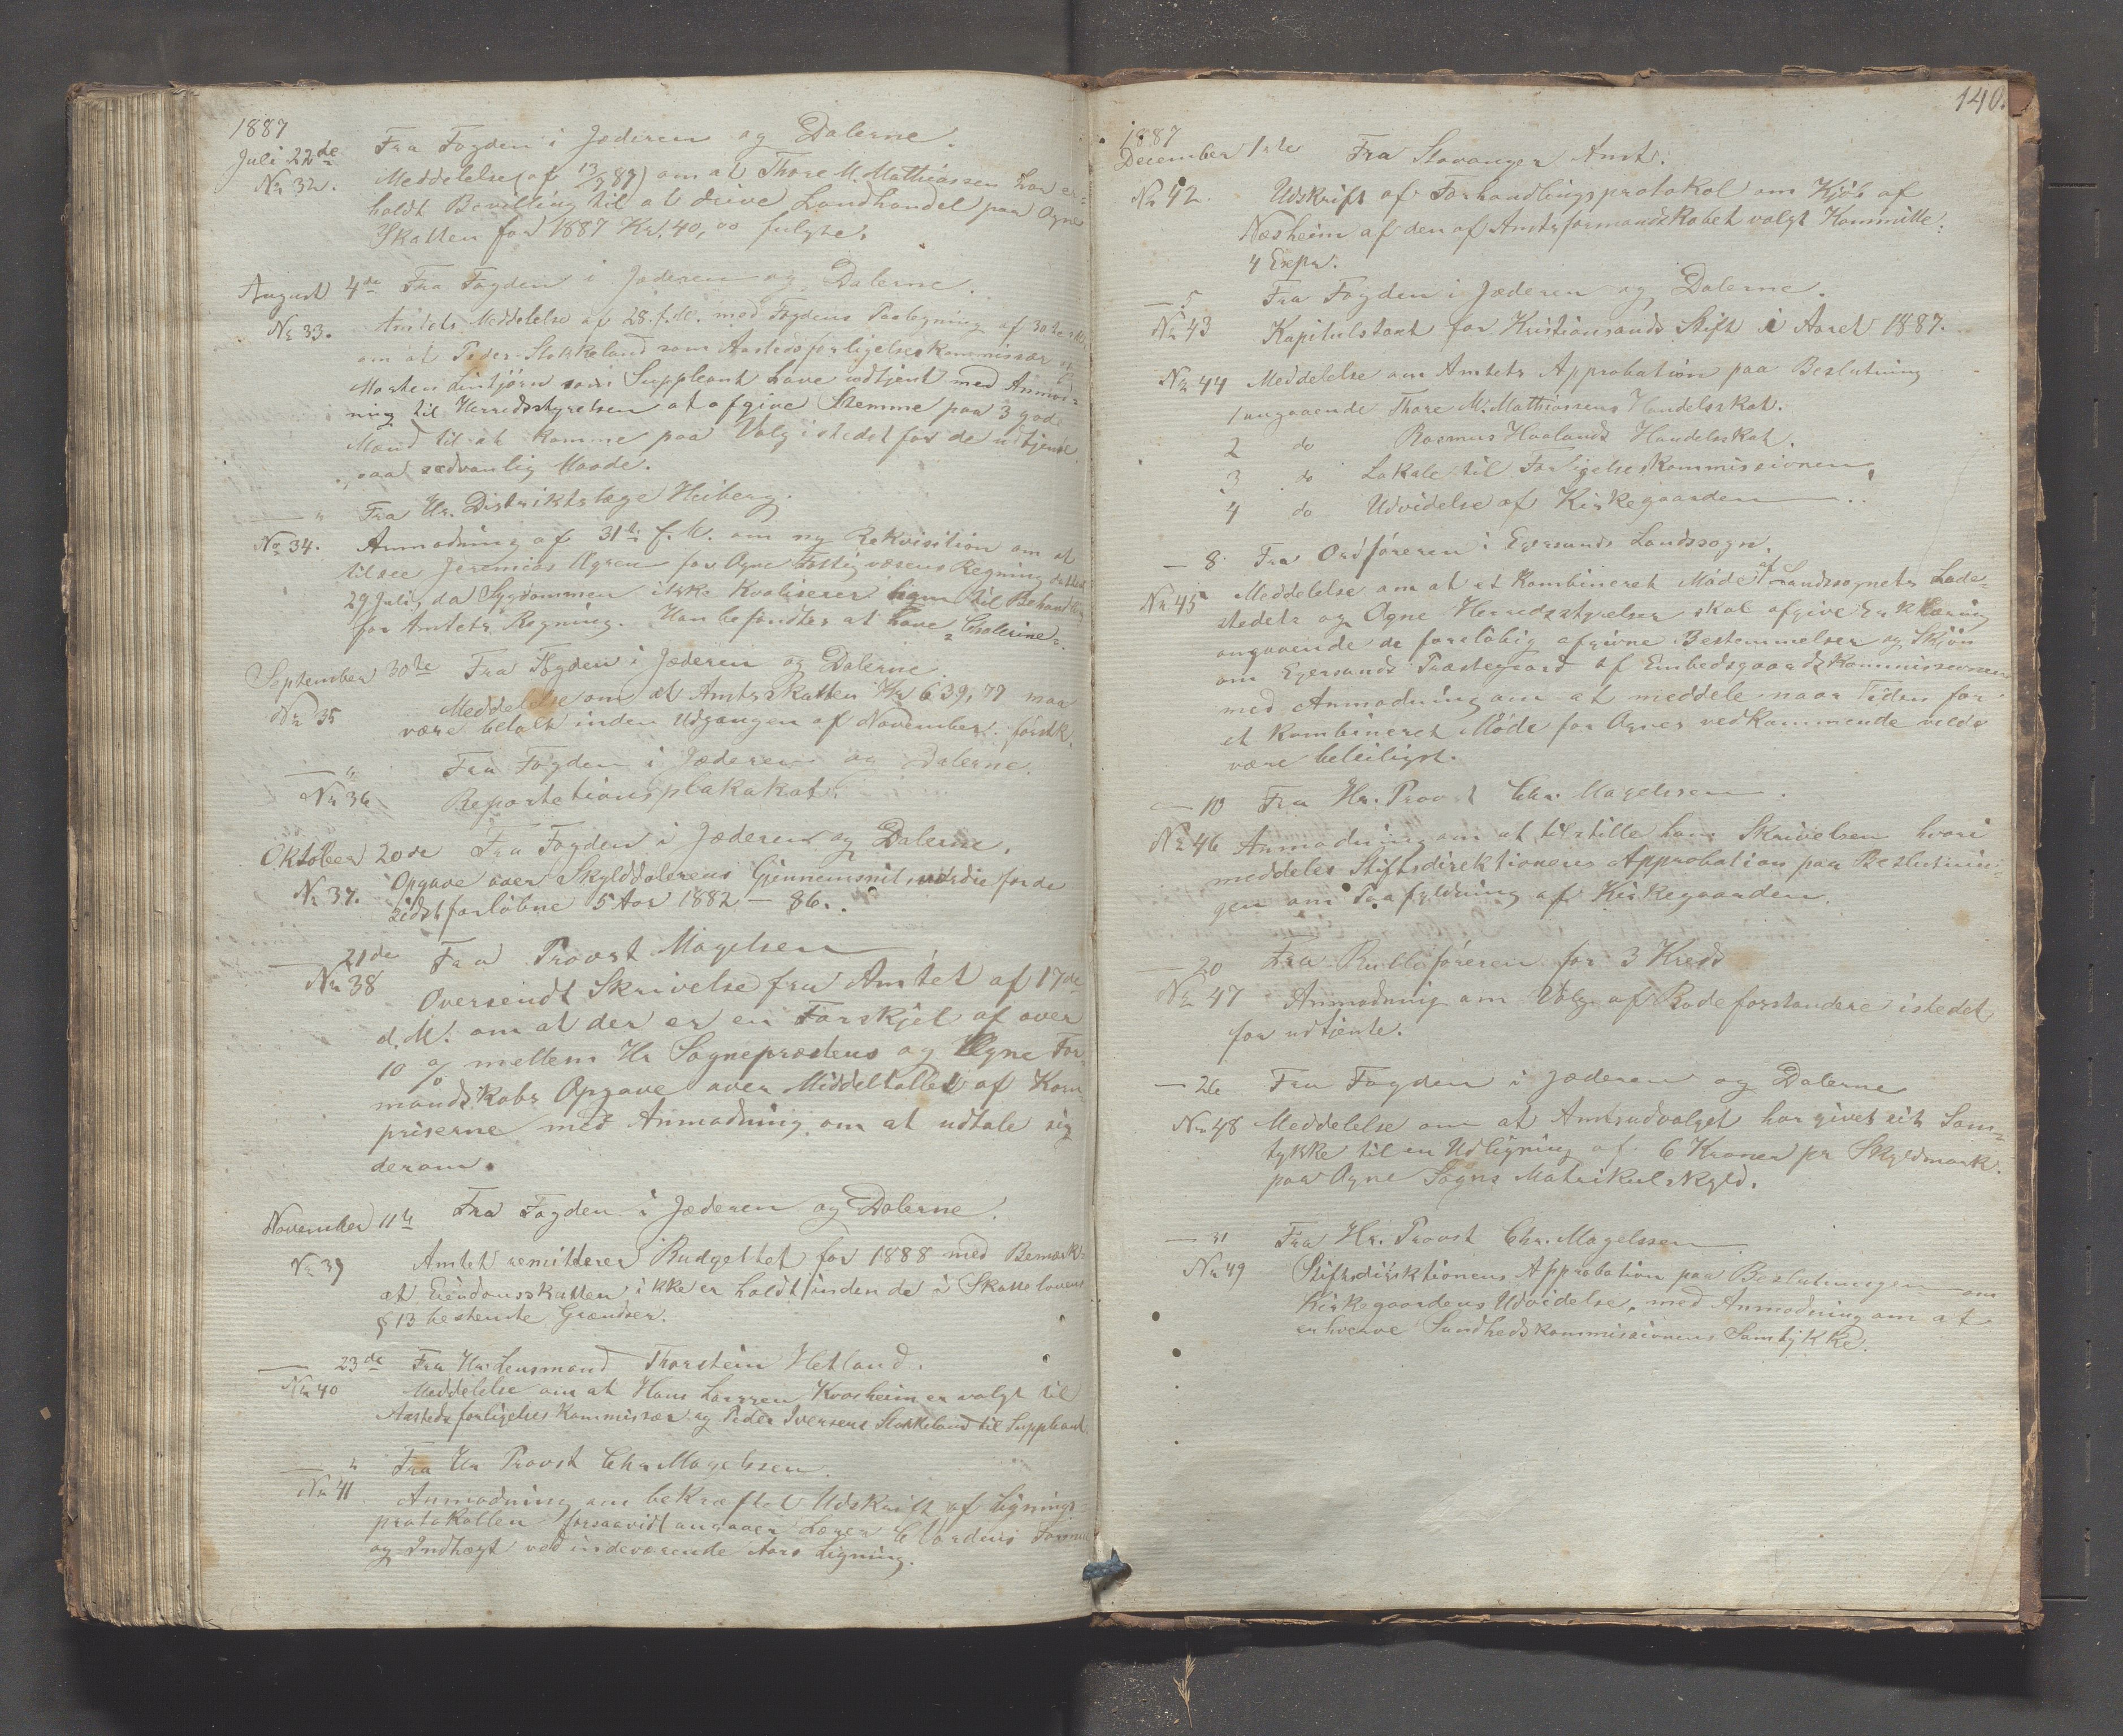 1887
Juli 22de Fra Fogden i Jæderen og Dalerne.
Nr 32. Meddelelse (af 13/7 87) om at Thore M. Mathiassen har er-
holdt Bevilling til at drive Landhandel paa Ogne
Skatten for 1887 Kr. 40,00 fulgte.
August 4de Fra Fogden i Jæderen og Dalerne.
Nr 33. Amtets Meddelelse af 28. f. M. med Fogdens Paategning af 30te s. M.
om at Peder Stokkeland som Aastedsforligelseskommissær og
Morten Lintjørn som Suppleant have udtjent med Anmod-
ning til Herredsstyrelsen at afgive Stemme paa 3 gode
Mænd til at komme paa Valg istedet for de udtjente
paa sædvanlig Maade.
— " Fra Hr. Distriktslæge Heiberg.
No 34. Anmodning af 31te f. M. om ny Rekvisition om at
tilsee Jeremias Ognen for Ogne Fattigvæsens Regning
29 Juli, da Sygdommen ikke kvaliserer ham til Behandling
for Amtets Regning. Han befindtes at have "Cholerine".
September 30te Fra Fogden i Jæderen og Dalerne.
Nr 35 Meddelelse om at Amtsskatten Kr 639,77 maa
være betalt inden Udgangen af November førstk.
— " Fra Fogden i Jæderen og Dalerne.
Nr 36 Repartetionsplakakat.
Oktober 20de Fra Fogden i Jæderen og Dalerne.
Nr 37. Opgave over Skylddalerens Gjennemsnitsværdie for de
sidstforløbne 5 Aar 1882 – 86.
— 21de Fra Provst Magelsen
Nr 38 Oversendt Skrivelse fra Amtet af 17de
d. M. om at der er en Forskjel af over
10 % mellem Hr Sognepræstens og Ogne For-
mandskabs Opgave over Middeltallet af Korn-
priserne med Anmodning om at udtale sig
derom.
November 11te Fra Fogden i Jæderen og Dalerne.
Nr 39 Amtet remitterer Budgettet for 1888 med Bemærk-
at Eiendomsskatten ikke er holdt inden de i Skattelovens
§ 13 bestemte Grændser.
— 23de Fra Hr. Lensmand Thorstein Hetland.
Nr 40 Meddelelse om at Hans Larssen Kvasheim er valgt til
Aastedsforligelseskommissær og Peder Iversen Stokkeland til Suppleant.
— " Fra Hr Provst Chr. Magelssen.
Nr 41 Anmodning om bekræftet Udskrift af Lignings-
protokollen forsaavidt angaaer Lærer Formue
og Indtægt ved indeværende Aars Ligning.
140.
1887
December 1ste Fra Stavanger Amt.
Nr 42. Udskrift af Forhandlingsprotokol om Kjøb af
Næsheim af den af Amtsformandskabet valgt Kommitte.
4 Expr.
— 5 Fra Fogden i Jæderen og Dalerne.
Nr 43 Kapitulstaxt for Kristiansands Stift i Aaret 1887.
Nr 44 Meddelelse om Amtets Approbation paa Beslutning
1 angaaende Thore M. Mathiassens Handelsskat.
2 do Rasmus Haalands Handelsskat.
3 do Lokale til Forligelseskommissionen.
4 do Udvidelse af Kirkegaarden
— 8. Fra Ordføreren i Egersunds Landssogn.
Nr 45 Meddelelse om at et kombineret Møde af Landssognets Lade-
stedets og Ogne Herredsstyrelser skal afgive Erklæring
angaaende de foreløbig afgivne Bestemmelser og Skjøn
om Egersunds Præstegaard af Embedsgaardskommissionen
med Anmodning om at meddele naar Tiden for
et kombineret Møde for Ognes vedkommende vilde
være beleiligst.
— 10 Fra Hr. Provst Chr. Magelssen.
Nr 46 Anmodning om at tilstille ham Skrivelsen hvori
meddeles Stiftsdirektionens Approbation paa Beslutnin-
gen om Paafyldning af Kirkegaarden.
— 20 Fra Rulleføreren for 3 Kreds
Nr 47 Anmodning om Valg af Rodeforstandere istedet
for udtjente.
— 26 Fra Fogden i Jæderen og Dalerne
Nr 48 Meddelelse om at Amtsudvalget har givet sit Sam-
tykke til en Udligning af 6 Kroner pr Skyldmark
paa Ogne Sogns Matrikulskyld.
— 31 Fra Hr. Provst Chr. Magelssen
Nr 49 Stiftsdirektionens Approbation paa Beslutningen om
Kirkegaardens Udvidelse, med Anmodning om at
erhverve Sundhedskommissionens Samtykke.